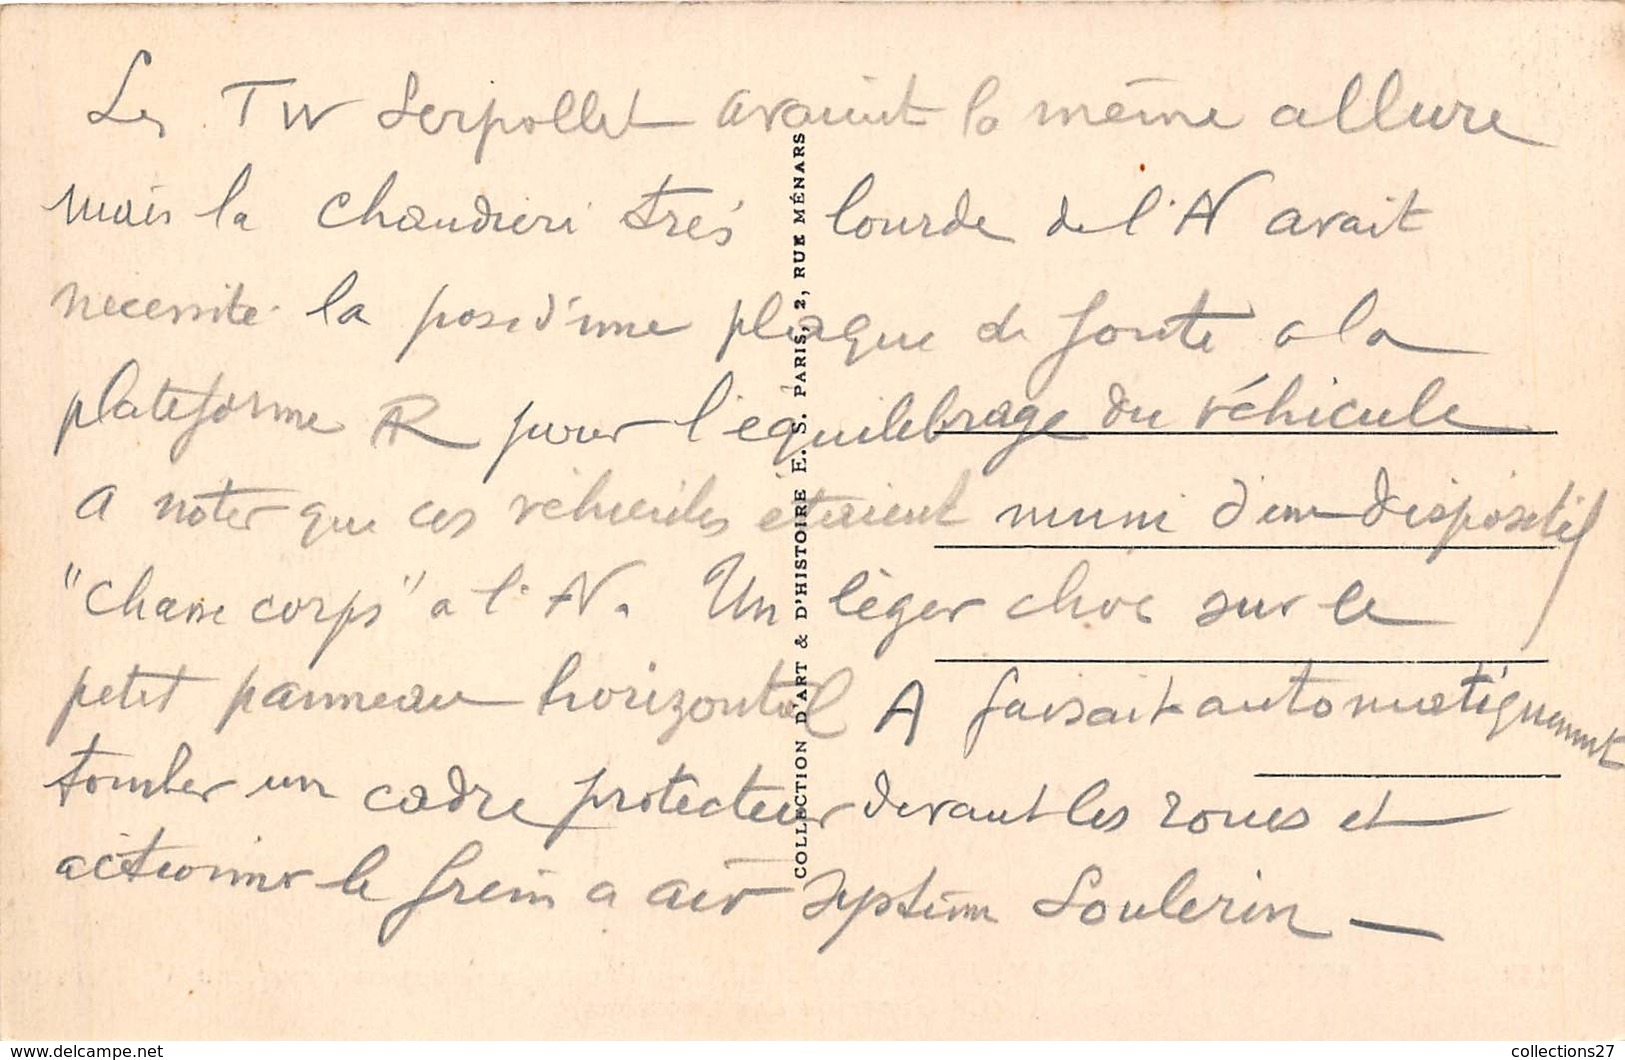 Les TW Serpollet avaient la même allure
mais la chaudiere très lourde de l'AV avait
necessité la pose d'une plaque de fonte a la
plateforme AR pour l'équilibrage du véhicule
A noter que ces véhicules étaient muni d'un dispositif
"chasse corps" a l'AV. Un léger choc sur le
petit panneau horizontal A faisait automatiquement
tomber un cadre protecteur devant les roues et
actionner le frein a air système Soulerin —
COLLECTION D'ART & D'HISTOIRE E. S. PARIS, 2, RUE MÉNARS
https://www.delcampe.net/
collections27